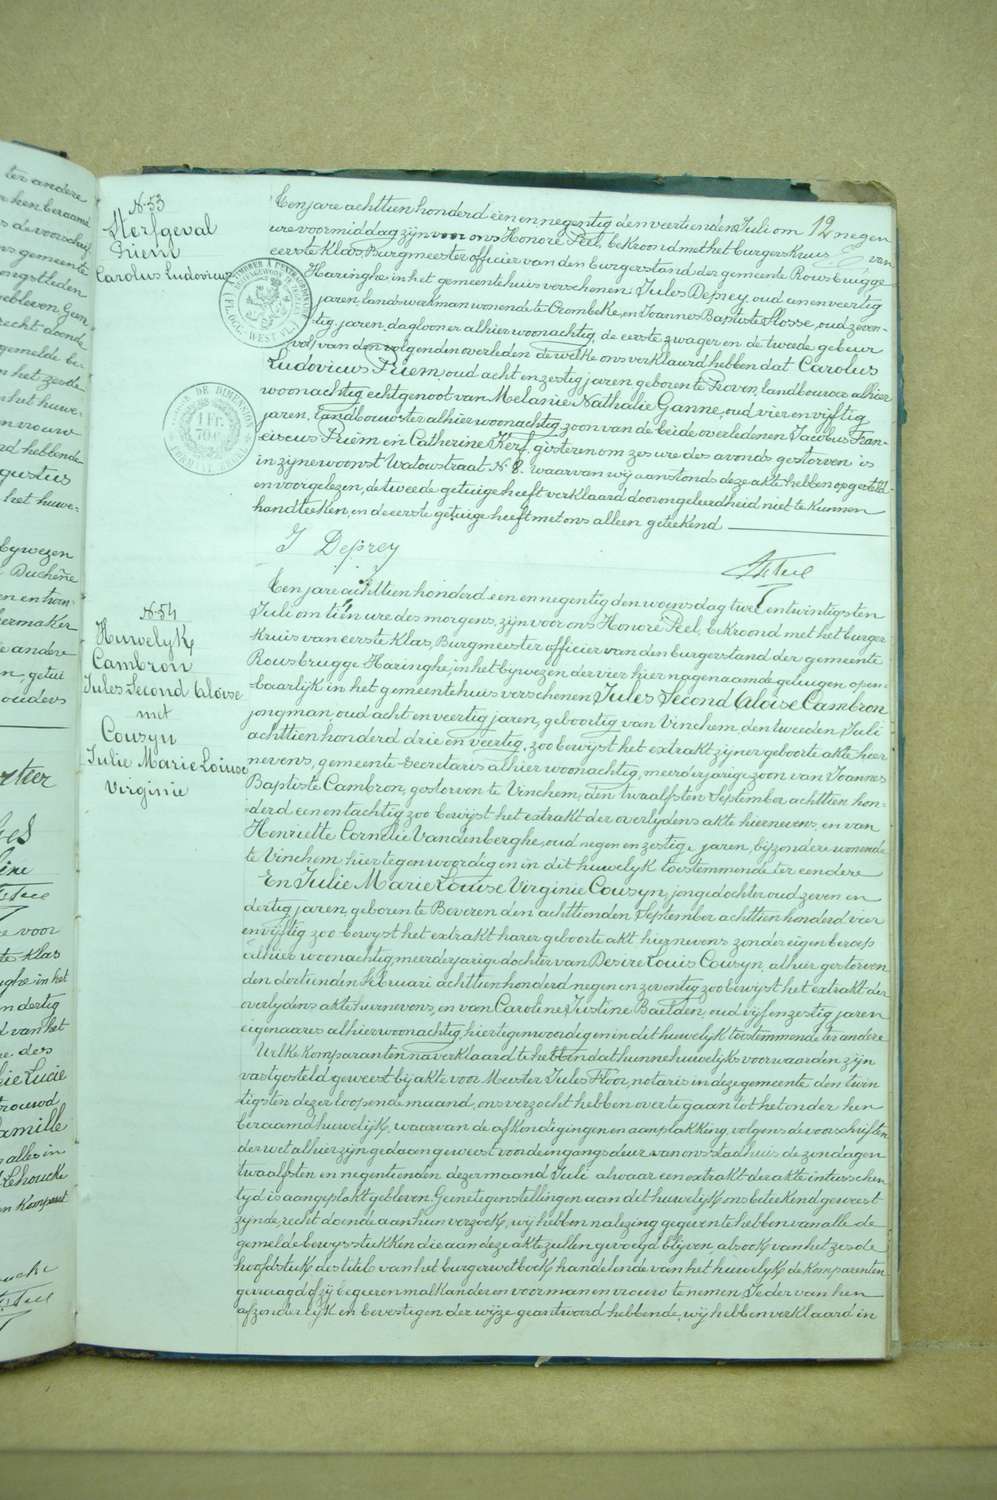 12
N. 53
Sterfgeval
Priem
Carolus Ludovicus
Een jare achttien honderd een en negentig den veertienden Juli om negen
ure voormiddag zijn voor ons Honoré Peel, bekroond met het burgerskruis van
eerste Klas, Burgmeester officier van den burgerstand der gemeente Rousbrugge
Haringhe in het gemeentehuis verschenen Jules Deprey, oud een en veertig
jaren, landswerkman wonende te Crombeke, en Joannes Baptiste Flosse, oud zeven-
tig jaren, daglooner alhier woonachtig, de eerste zwager en de tweede gebeur
van den volgenden overleden dewelke ons verklaard hebben dat Carolus
Ludovicus Priem, oud acht en zestig jaren geboren te Proven, landbouwer alhier
woonachtig echtgenoot van Melanie Nathalie Ganne, oud vier en vijftig
jaren, landbouwster alhier woonachtig, zoon van de beide overledenen Jacobus Fran-
ciscus Priem en Catherine Kerf, gisteren om zes ure des avonds gestorven is
in zijne woonst Watoustraat N. 8. waarvan wij aanstonds deze akte hebben opgesteld
en voorgelezen, de tweede getuige heeft verklaard door ongeleerdheid niet te kunnen
handteeken, en de eerste getuige heeft met ons alleen geteekend
J Deprey
H Peel
N. 54
Huwelyk
Cambron
Jules Second Aloïse
met
Cousyn
Julie Marie Louise
Virginie
Een jare achttien honderd een en negentig den woensdag twee en twintigsten
Juli om tien ure des morgens, zijn voor ons Honoré Peel, bekroond met het burger
kruis van eerste Klas, Burgmeester officier van den burgerstand der gemeente
Rousbrugge Haringhe, in het bywezen der vier hier nagenaamde getuigen open-
baarlijk in het gemeentehuis verschenen Jules Second Aloïse Cambron
jongman oud acht en veertig jaren, geboortig van Vinchem, den tweeden Juli
achttien honderd drie en veertig, zoo bewyst het extrakt zijner geboorte akte hier
nevens, gemeente Secretaris alhier woonachtig, meerderjarige zoon van Joannes
Baptiste Cambron, gestorven te Vinchem, den twaalfsten September achttien hon-
derd een en tachtig zoo bewijst het extrakt der overlydens akte hiernevens, en van
Henriette Cornelie Vandenberghe, oud negen en zestig jaren, bijzondere wonende
te Vinchem hier tegenwoordig en in dit huwelijk toestemmende ter eendere
En Julie Marie Louise Virginie Cousyn, jongedochter oud zeven en
dertig jaren, geboren te Beveren den achttienden September achttien honderd vier
en vijftig zoo bewyst het extrakt harer geboorte akt hiernevens zonder eigen beroep
alhier woonachtig, meerderjarige dochter van Desire Louis Cousyn, alhier gestorven
den dertienden Februari achttien honderd negen en zeventig zoo bewijst het extrakt der
overlydens akte hiernevens, en van Caroline Justine Baelden, oud vijf en zestig jaren
eigenaares alhier woonachtig, hier tegenwoordig en in dit huwelijk toestemmende ter andere
Welke Komparanten na verklaard te hebben dat hunne huwelijks voorwaarden zijn
vastgesteld geweest bij akte voor Meester Jules Floor, notaris in deze gemeente den twin
tigsten dezer loopende maand, ons verzocht hebben over te gaan tot het onder hen
beraamd huwelijk, waarvan de afkondigingen en aanplakking volgens de voorschriften
der wet alhier zijn gedaan geweest voor de ingangsdeur van ons stadhuis de zondagen
twaalfsten en negentienden dezer maand Juli alwaar een extrakt der akte intusschen
tyd is aangeplakt gebleven. Geene tegenstellingen aan dit huwelijk ons beteekend geweest
zijnde, recht doende aan hun verzoek, wij hebben na lezing gegeven te hebben van alle de
gemelde bewysstukken die aan deze akte zullen gevoegd blijven, alsook van het zesde
hoofdstuk des titel van het burgerwetboek handelende van het huwelyk de Komparenten
gevraagd of zij begeeren malkanderen voor man en vrouw te nemen. Ieder van hen
afzonderlyk en bevestigender wijze geantwoord hebbende, wij hebben verklaard in